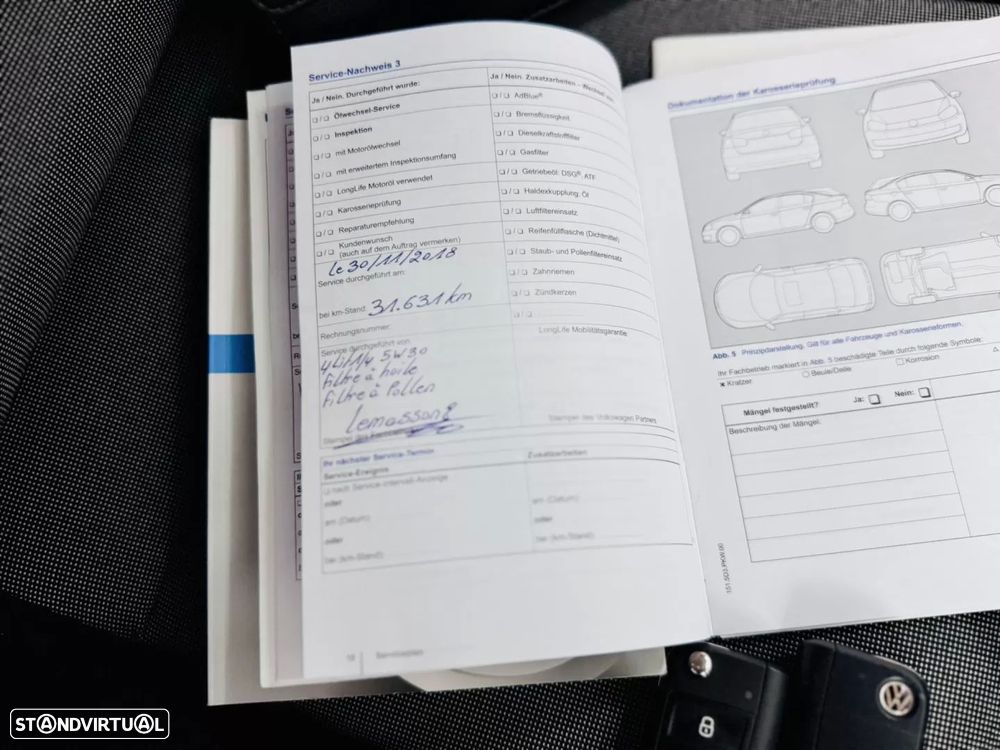 Service-Nachweis 3
Ja / Nein. Durchgeführt wurde:
❏ / ❏ Ölwechsel-Service
❏ / ❏ Inspektion
❏ / ❏ mit Motorölwechsel
❏ / ❏ mit erweitertem Inspektionsumfang
❏ / ❏ LongLife Motoröl verwendet
❏ / ❏ Karosserieprüfung
❏ / ❏ Reparaturempfehlung
❏ / ❏ Kundenwunsch
(auch auf dem Auftrag vermerken)
le 30/11/2018
Service durchgeführt am:
bei km-Stand: 31.631 km
Rechnungsnummer:
Service durchgeführt von
5W30
Filtre à huile
Filtre à Pollen
Ja / Nein. Zusatzarbeiten – Wechsel von:
❏ / ❏ AdBlue®
❏ / ❏ Bremsflüssigkeit
❏ / ❏ Dieselkraftstofffilter
❏ / ❏ Gasfilter
❏ / ❏ Getriebeöl: DSG®, ATF
❏ / ❏ Haldexkupplung, Öl
❏ / ❏ Luftfiltereinsatz
❏ / ❏ Reifenfüllflasche (Dichtmittel)
❏ / ❏ Staub- und Pollenfiltereinsatz
❏ / ❏ Zahnriemen
❏ / ❏ Zündkerzen
❏ / ❏
LongLife Mobilitätsgarantie
Stempel des Volkswagen Partners
Ihr nächster Service-Termin
Service-Ereignis
❏ nach Service-Intervall-Anzeige
oder
am (Datum)
oder
bei (km-Stand)
Zusatzarbeiten
am (Datum)
oder
bei (km-Stand)
18 Serviceplan
Dokumentation der Karosserieprüfung
Abb. 5 Prinzipdarstellung. Gilt für alle Fahrzeuge und Karosserieformen.
Ihr Fachbetrieb markiert in Abb. 5 beschädigte Teile durch folgende Symbole:
× Kratzer ○ Beule/Delle □ Korrosion
Mängel festgestellt? Ja: ❏ Nein: ❏
Beschreibung der Mängel:
151.5D3.PKW.00
STANDVIRTUAL